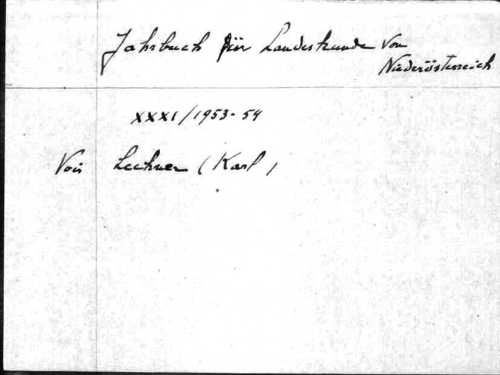 Jahrbuch für Landeskunde von
Niederösterreich
XXXI/1953-54
Voir Lechner (Karl)